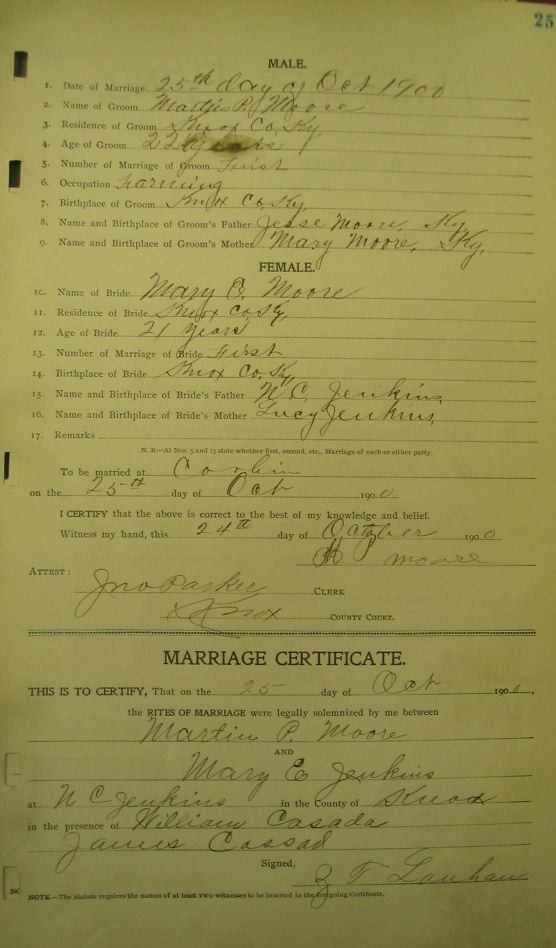 25
MALE.
1. Date of Marriage 25th day of Oct 1900
2. Name of Groom Martin P. Moore
3. Residence of Groom Knox Co, Ky,
4. Age of Groom 22 years
5. Number of Marriage of Groom First
6. Occupation Farming
7. Birthplace of Groom Knox Co, Ky,
8. Name and Birthplace of Groom's Father Jesse Moore, Ky,
9. Name and Birthplace of Groom's Mother Mary Moore, Ky,
FEMALE.
10. Name of Bride Mary E. Moore
11. Residence of Bride Knox Co, Ky,
12. Age of Bride 21 years
13. Number of Marriage of Bride First
14. Birthplace of Bride Knox Co, Ky,
15. Name and Birthplace of Bride's Father N. C. Jenkins,
16. Name and Birthplace of Bride's Mother Lucy Jenkins,
17. Remarks
N. B.—At Nos. 5 and 13 state whether first, second, etc., Marriage of each or either party.
To be married at Corbin
on the 25th day of Oct 1900
I CERTIFY that the above is correct to the best of my knowledge and belief.
Witness my hand, this 24th day of October 1900
P Moore
ATTEST:
Jno Parker CLERK
Knox COUNTY COURT.
MARRIAGE CERTIFICATE.
THIS IS TO CERTIFY, That on the 25 day of Oct 1900,
the RITES OF MARRIAGE were legally solemnized by me between
Martin P. Moore
AND
Mary E Jenkins
at N C Jenkins in the County of Knox
in the presence of William Casada
James Cossad
Signed,
Z T Lanham
NOTE.—The Statute requires the names of at least TWO witnesses to be inserted in the foregoing Certificate.